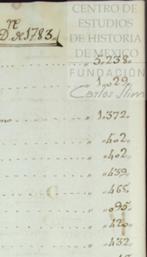 CENTRO DE
ESTUDIOS
DE HISTORIA
DE MEXICO
FUNDACIÓN
Carlos Slim
D. 1783.
5,238.
1,029.
1,372.
402.
402.
439.
465.
095.
420.
432.